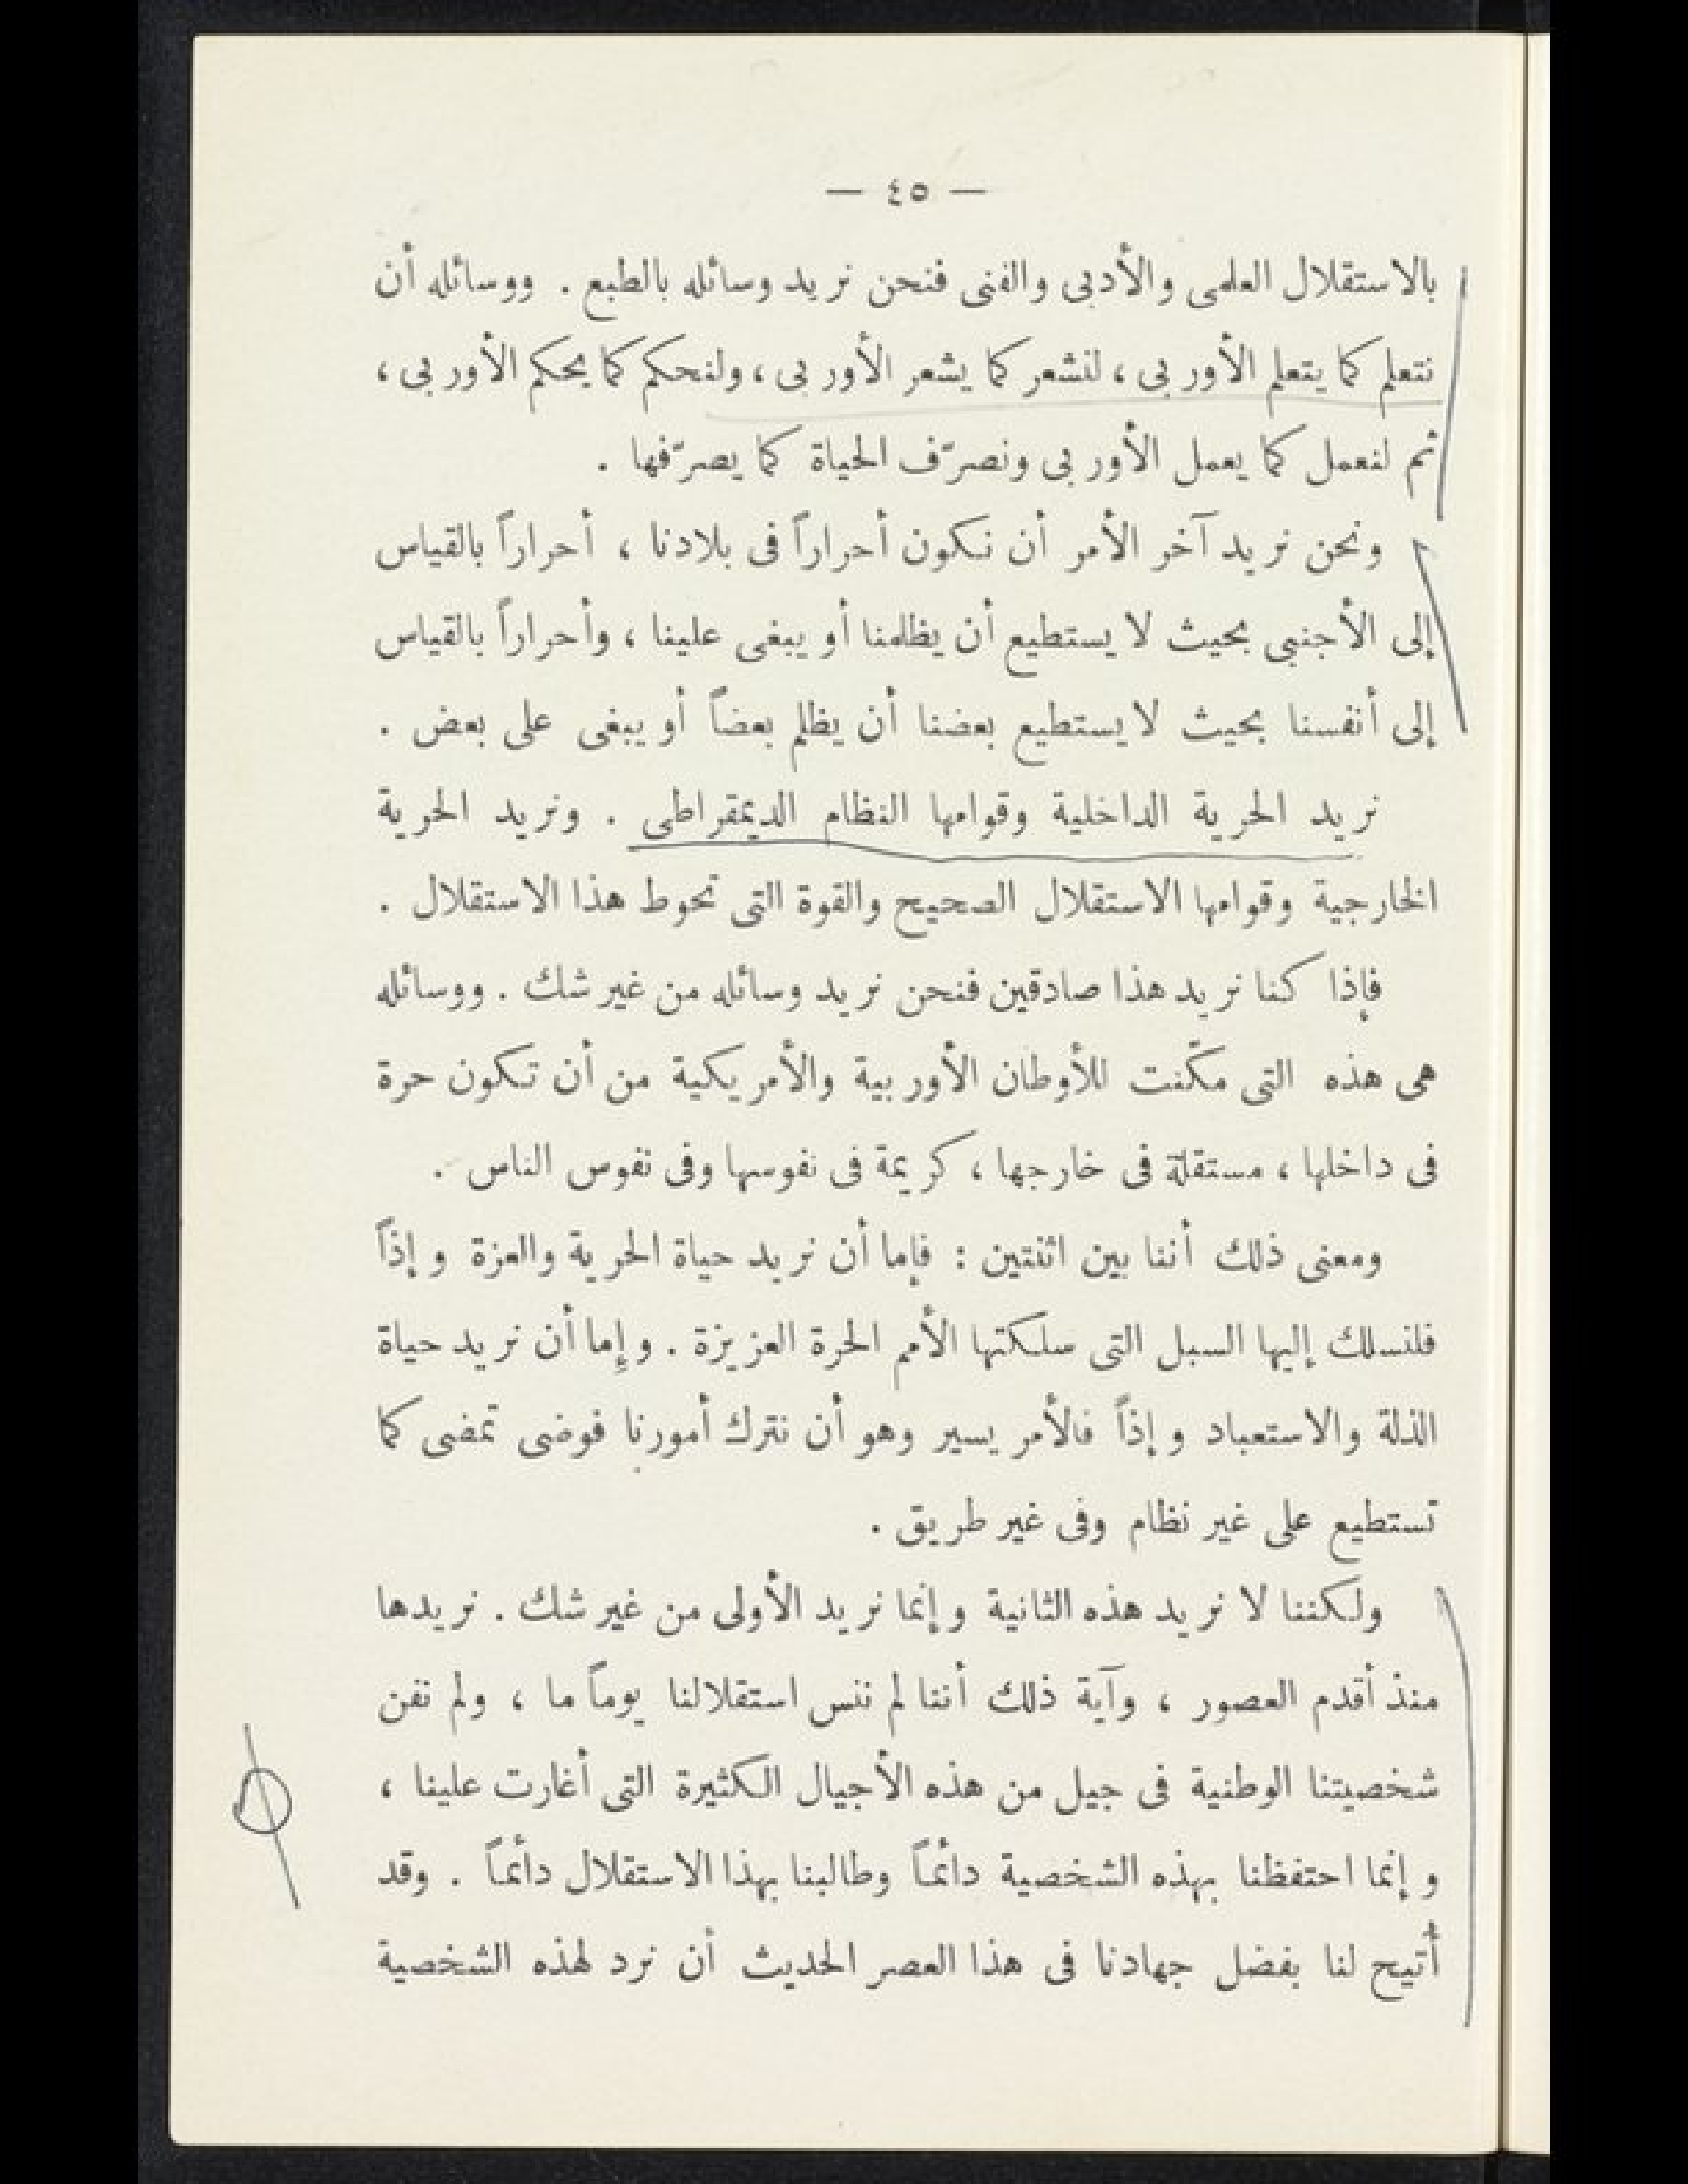 — ٤٥ —
بالاستقلال العلمى والأدبى والفنى فنحن نريد وسائله بالطبع . ووسائله أن
نتعلم كما يتعلم الأوربى ، لنشعر كما يشعر الأوربى ، ولنحكم كما يحكم الأوربى ،
ثم لنعمل كما يعمل الأوربى ونصرّف الحياة كما يصرّفها .
ونحن نريد آخر الأمر أن نكون أحراراً فى بلادنا ، أحراراً بالقياس
إلى الأجنبى بحيث لا يستطيع أن يظلمنا أو يبغى علينا ، وأحراراً بالقياس
إلى أنفسنا بحيث لا يستطيع بعضنا أن يظلم بعضاً أو يبغى على بعض .
نريد الحرية الداخلية وقوامها النظام الديمقراطى . ونريد الحرية
الخارجية وقوامها الاستقلال الصحيح والقوة التى تحوط هذا الاستقلال .
فإذا كنا نريد هذا صادقين فنحن نريد وسائله من غير شك . ووسائله
هى هذه التى مكّنت للأوطان الأوربية والأمريكية من أن تكون حرة
فى داخلها ، مستقلة فى خارجها ، كريمة فى نفوسها وفى نفوس الناس .
ومعنى ذلك أننا بين اثنتين : فإما أن نريد حياة الحرية والعزة وإذاً
فلنسلك إليها السبل التى سلكتها الأمم الحرة العزيزة . وإما أن نريد حياة
الذلة والاستعباد وإذاً فالأمر يسير وهو أن نترك أمورنا فوضى تمضى كما
تستطيع على غير نظام وفى غير طريق .
ولكننا لا نريد هذه الثانية وإنما نريد الأولى من غير شك . نريدها
منذ أقدم العصور ، وآية ذلك أننا لم ننس استقلالنا يوماً ما ، ولم تفن
شخصيتنا الوطنية فى جيل من هذه الأجيال الكثيرة التى أغارت علينا ،
وإنما احتفظنا بهذه الشخصية دائماً وطالبنا بهذا الاستقلال دائماً . وقد
أُتيح لنا بفضل جهادنا فى هذا العصر الحديث أن نرد لهذه الشخصية